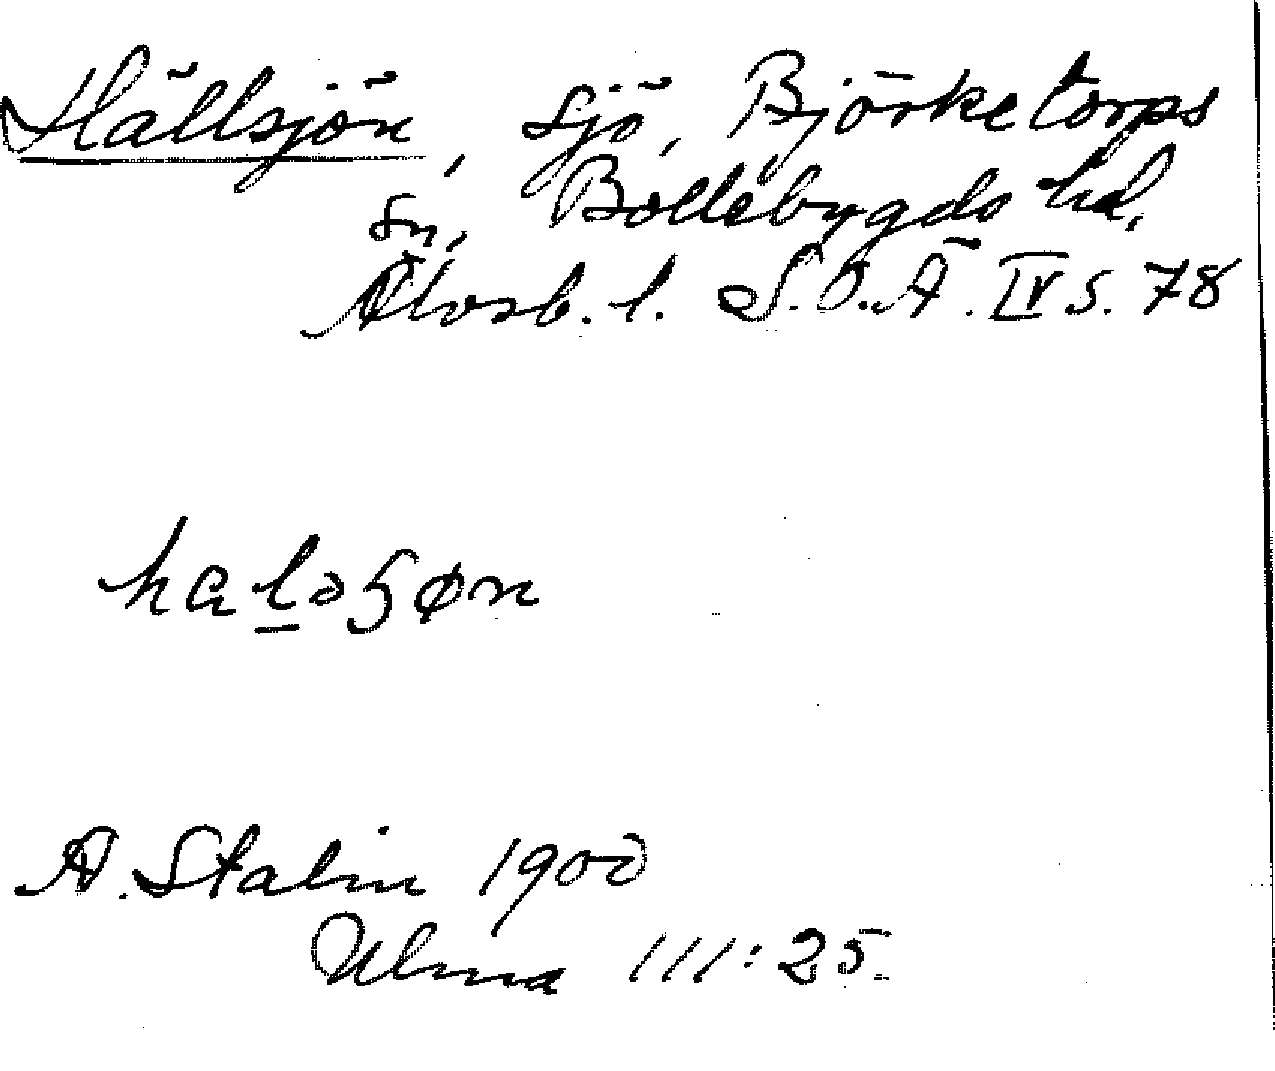 Hällsjön, sjö, Björketorps
sn, Bollebygds hd,
Älvsb. l. S.O.Ä. IV s. 78
A. Stalin 1900
Ulma 111:25